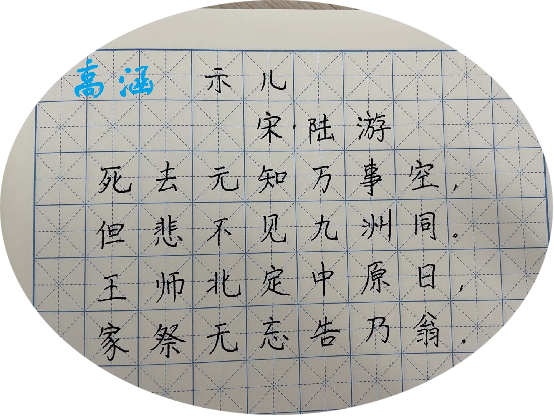 高涵 示儿
宋·陆游
死去元知万事空，
但悲不见九洲同。
王师北定中原日，
家祭无忘告乃翁.